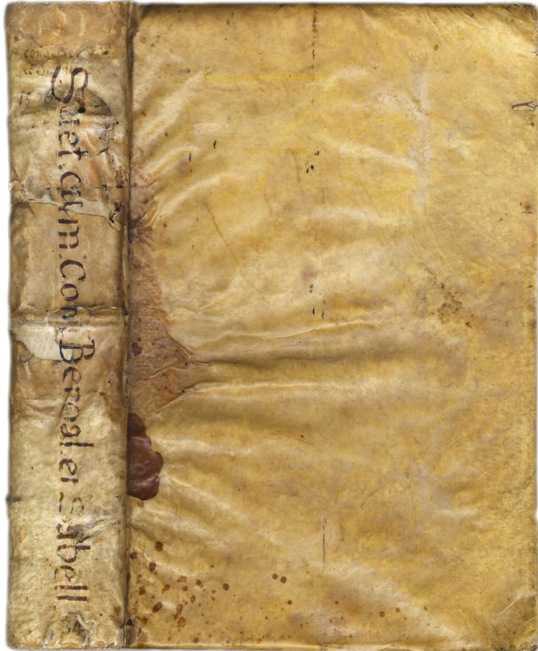 Suet. cum. Com. Beroal. et Sabell